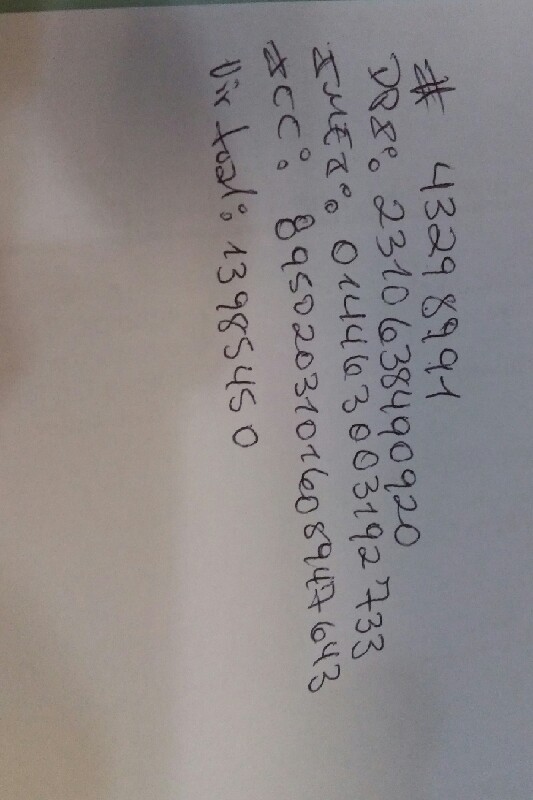 # 4329 8991
DPI: 2310638490920
IMEI: 014463003192733
ICC: 8950203101608947643
Vir tual: 13985450